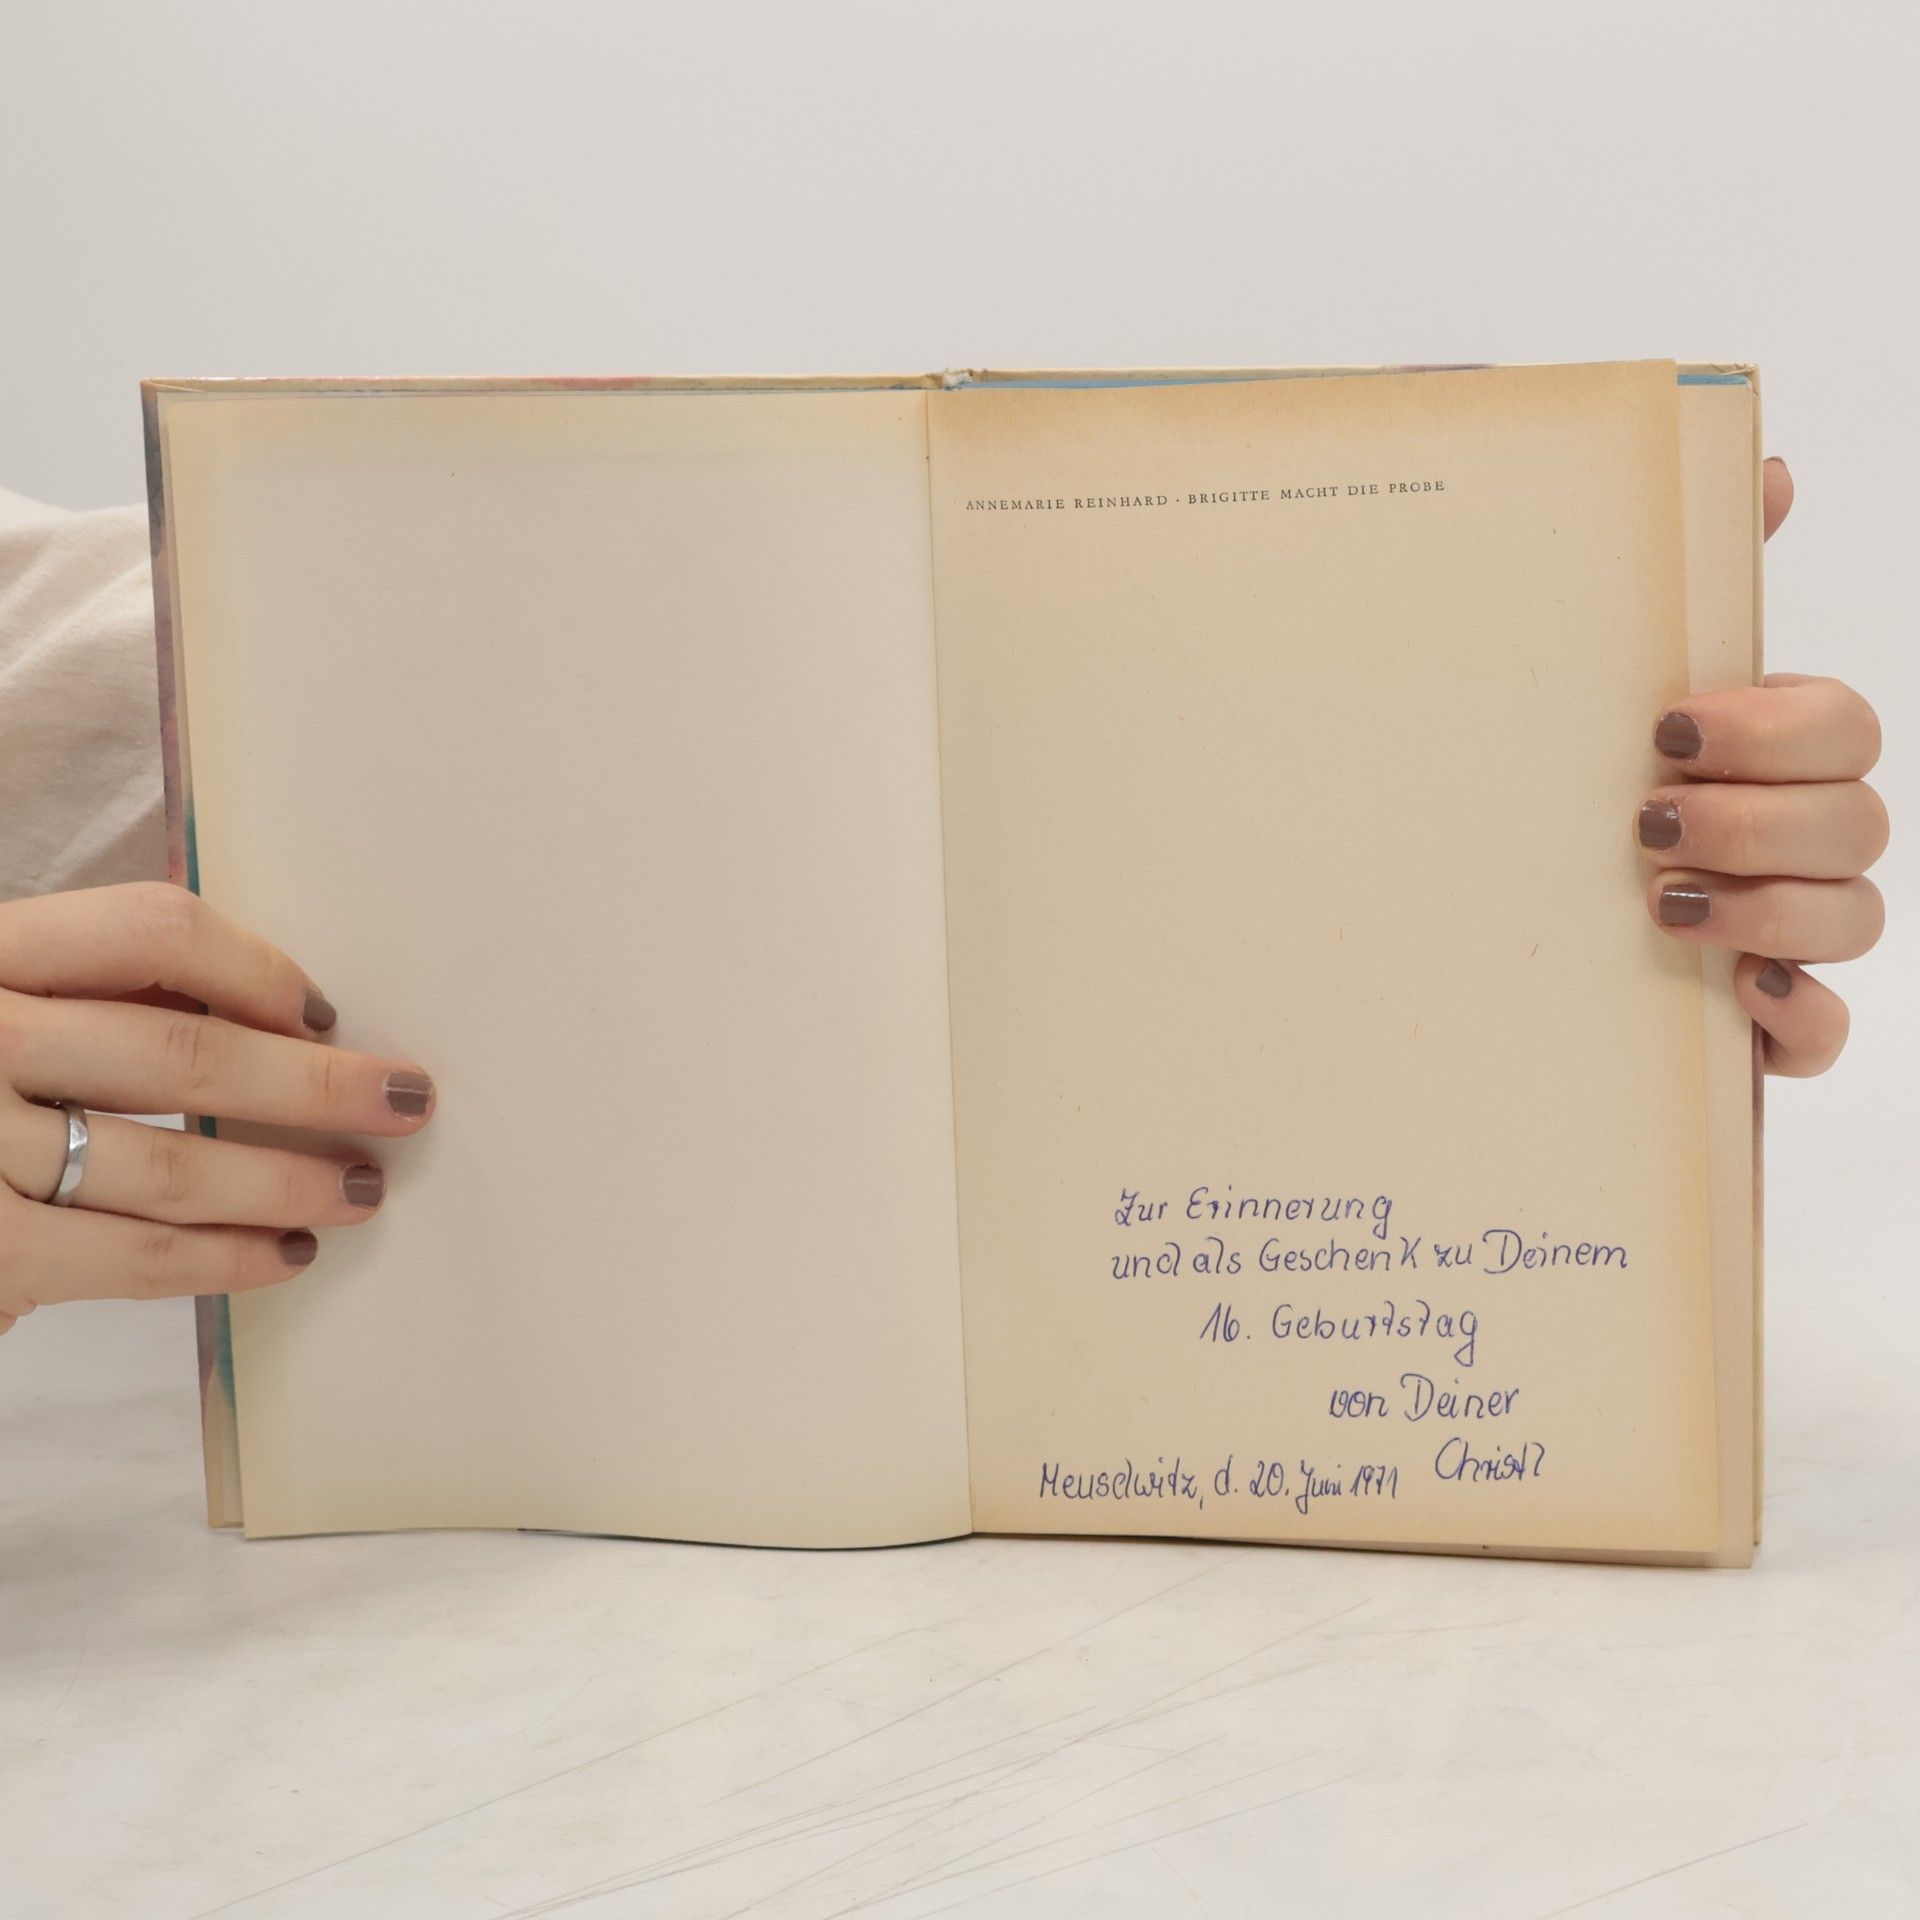 ANNEMARIE REINHARD · BRIGITTE MACHT DIE PROBE
Zur Erinnerung
und als Geschenk zu Deinem
16. Geburtstag
von Deiner
Christl
Meuselwitz, d. 20. Juni 1971